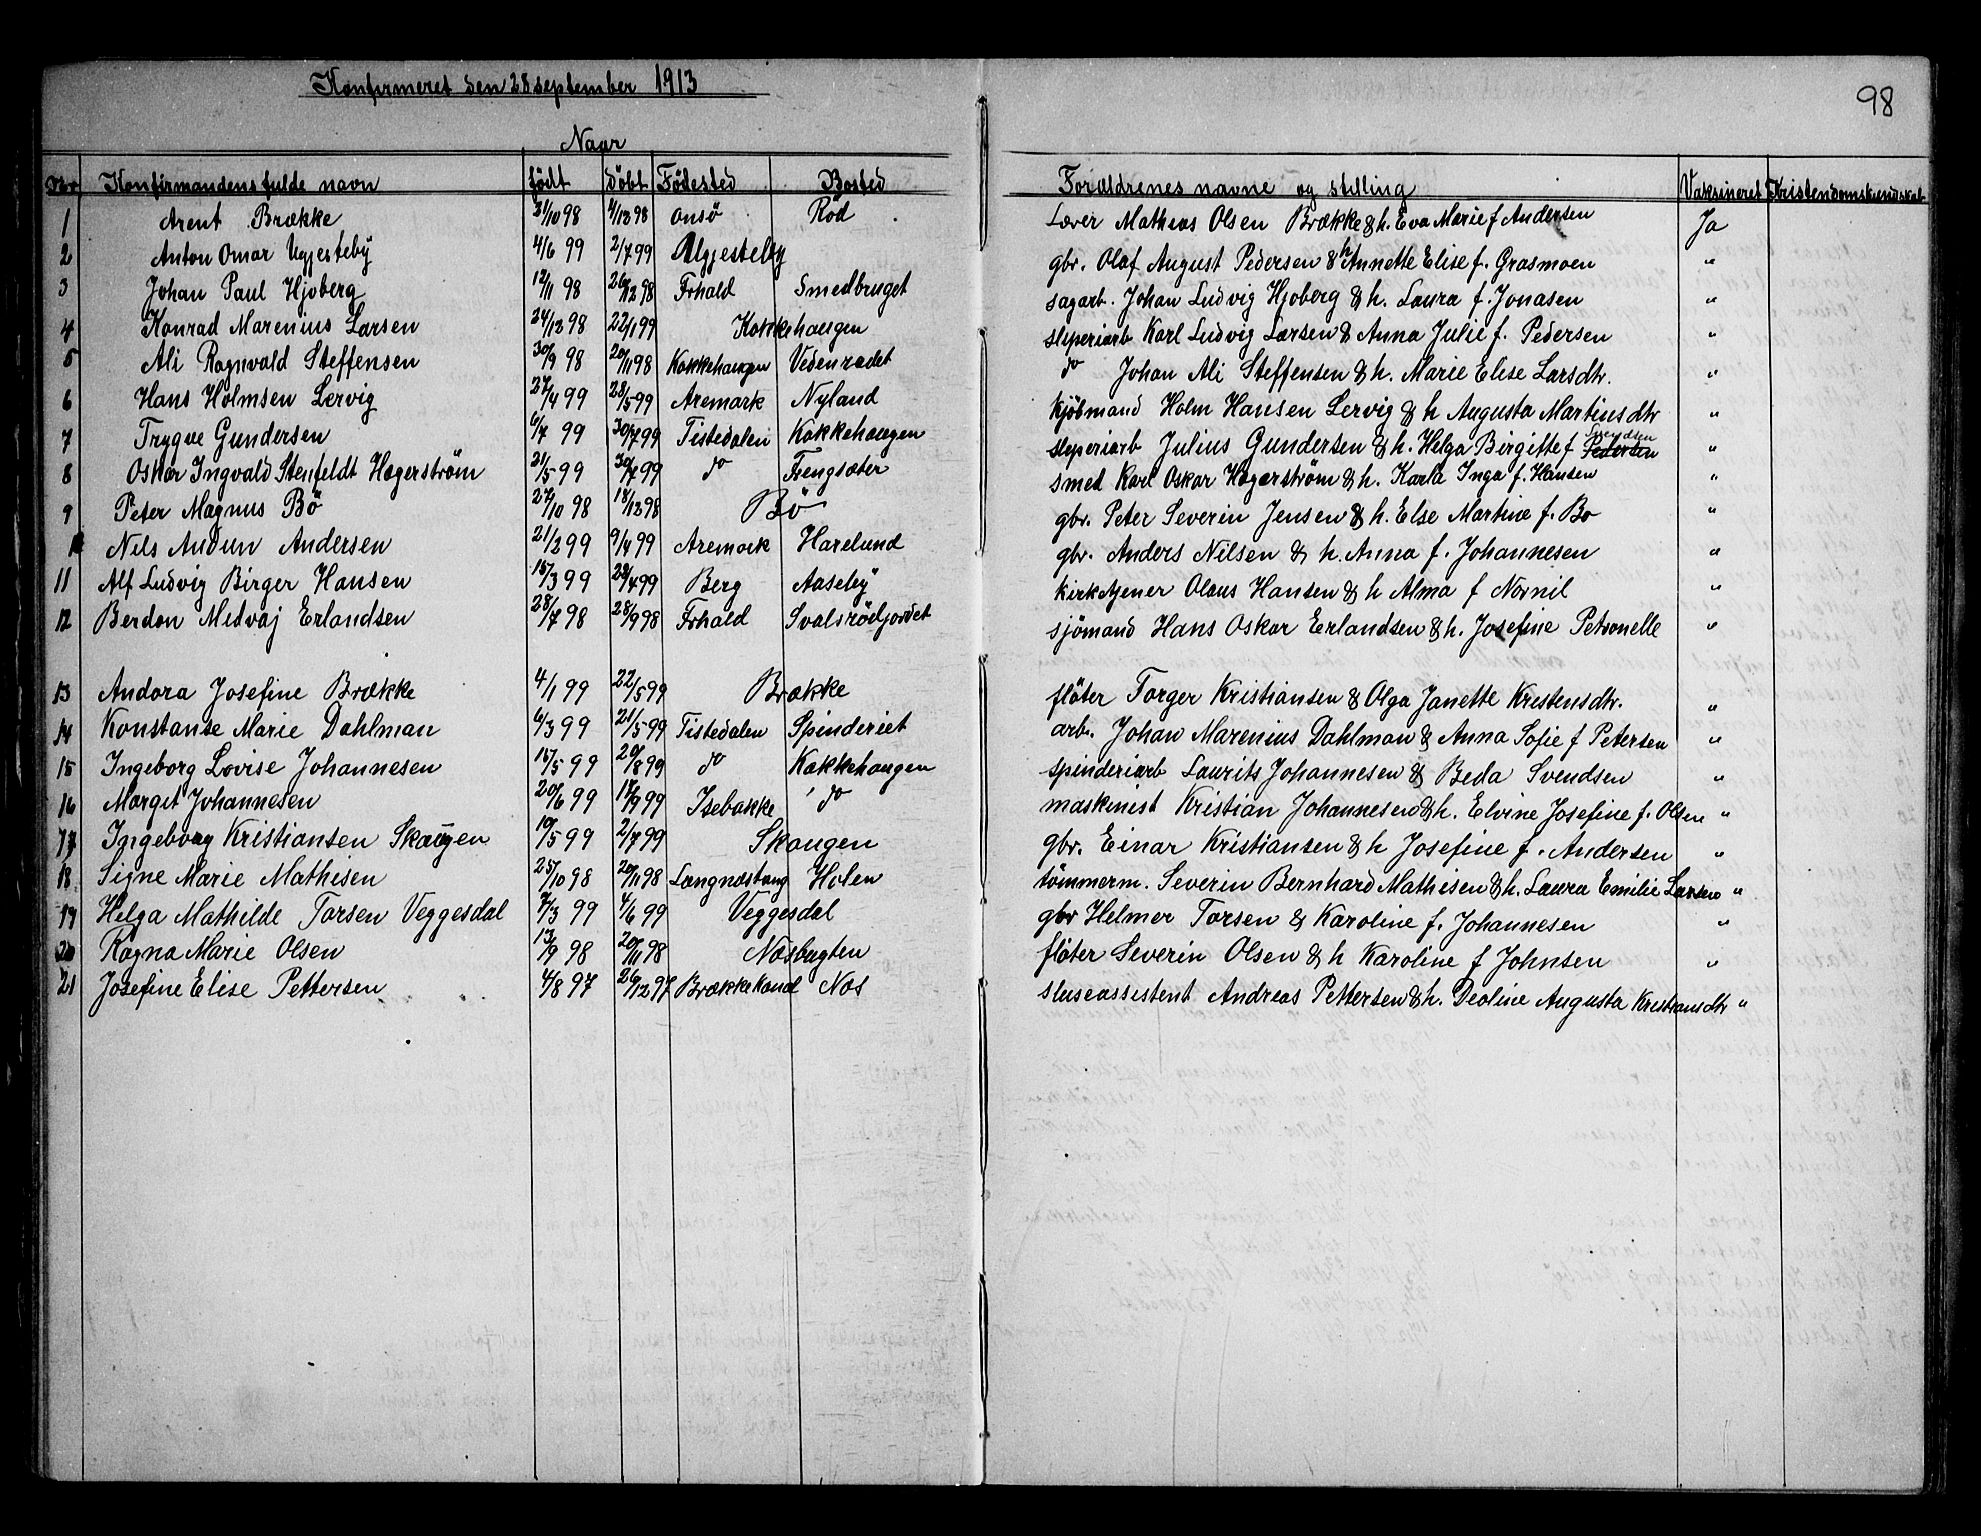 Konfirmeret den 28 september 1913
98
Naar
Nr. Konfirmandens fulde navn født døbt Fødested Bosted Forældrenes navne og stilling Vaksineret Kristendomskundskab
1 Arent Brække 31/10 98 4/12 98 Onsö Röd Læver Mathias Olsen Brække & h. Eva Marie f Andersen Ja
2 Anton Omar Ugjesteby 4/6 99 2/7 99 Ugjesteby gbr. Olaf August Pedersen & h Annette Elise f. Grasmoen "
3 Johan Paul Hjoberg 12/11 98 26/12 98 Frhald Smedbruget sagarb. Johan Ludvig Hjoberg & h. Laura f. Jonasen "
4 Konrad Marenius Larsen 24/12 98 22/1 99 Kokkehaugen sliperiarb Karl Ludvig Larsen & Anna Julie f. Pedersen "
5 Ali Ragnvald Steffensen 30/9 98 20/11 98 Kokkehaugen Vedenradet do Johan Ali Steffensen & h. Marie Elise Larsdtr. "
6 Hans Holmsen Lervig 27/4 99 28/5 99 Aremark Nyland kjöbmand Holm Hansen Lervig & h Augusta Martinsdtr "
7 Trygve Gundersen 6/7 99 30/7 99 Tistedalen Kokkehaugen sliperiarb Julius Gundersen & h. Helga Birgitte f Pedersen "
8 Oskar Ingvald Stenfeldt Hægerström 21/5 99 30/7 99 do Fengsæter smed Karl Oskar Hægerström & h. Karla Inga f. Hansen "
9 Peter Magnus Bö 27/10 98 18/12 98 Bö gbr. Peter Severin Jensen & h. Else Martine f. Bö "
10 Nils Audun Andersen 21/2 99 9/4 99 Aremark Harelund gbr. Anders Nilsen & h. Anna f. Johannesen "
11 Alf Ludvig Birger Hansen 15/3 99 29/4 99 Berg Aaseby kirketjener Olaus Hansen & h Alma f Nornil "
12 Berdon Medvaj Erlandsen 28/7 98 28/9 98 Frhald Svalsrödjordet sjömand Hans Oskar Erlandsen & h. Josefine Petronelle "
13 Andora Josefine Brække 4/1 99 22/5 99 Brække flöter Torger Kristiansen & Olga Janette Kristensdtr. "
14 Konstanse Marie Dahlman 6/3 99 21/5 99 Tistedalen Spinderiet arb. Johan Marenius Dahlman & Anna Sofie f Petersen "
15 Ingeborg Lovise Johannesen 15/5 99 20/8 99 do Kokkehaugen spinderiarb Laurits Johannesen & Beda Svendsen "
16 Margit Johannesen 20/6 99 17/9 99 Isebakke do maskinist Kristian Johannesen & h. Elvine Josefine f. Olsen "
17 Ingeborg Kristiansen Skaugen 19/5 99 2/7 99 Skaugen gbr. Einar Kristiansen & h Josefine f. Andersen "
18 Signe Marie Mathisen 25/10 98 20/11 98 Langnæstang Holen tömmerm. Severin Bernhard Mathisen & h. Laura Emilie Larsen "
19 Helga Mathilde Torsen Veggesdal 7/3 99 4/6 99 Veggesdal gbr Helmer Torsen & Karoline f. Johannesen "
20 Ragna Marie Olsen 13/9 98 20/11 98 Næsbugten flöter Severin Olsen & h Karoline f Johnsen "
21 Josefine Elise Pettersen 4/8 97 26/12 97 Brække Kanal Næs sluseassistent Andreas Pettersen & h. Deoline Augusta Kristiansdtr "